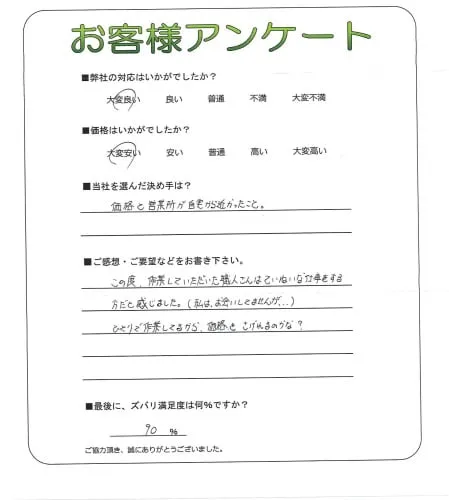 お客様アンケート
■弊社の対応はいかがでしたか？
大変良い 良い 普通 不満 大変不満
■価格はいかがでしたか？
大変安い 安い 普通 高い 大変高い
■当社を選んだ決め手は？
価格と営業所が自宅から近かったこと。
■ご感想・ご要望などをお書き下さい。
この度、作業していただいた職人さんはていねいな仕事をする
方だと感じました。（私は、お会いしてませんが…）
ひとりで作業してるから、価格を さげれるのかな？
■最後に、ズバリ満足度は何％ですか？
90 %
ご協力頂き、誠にありがとうございました。